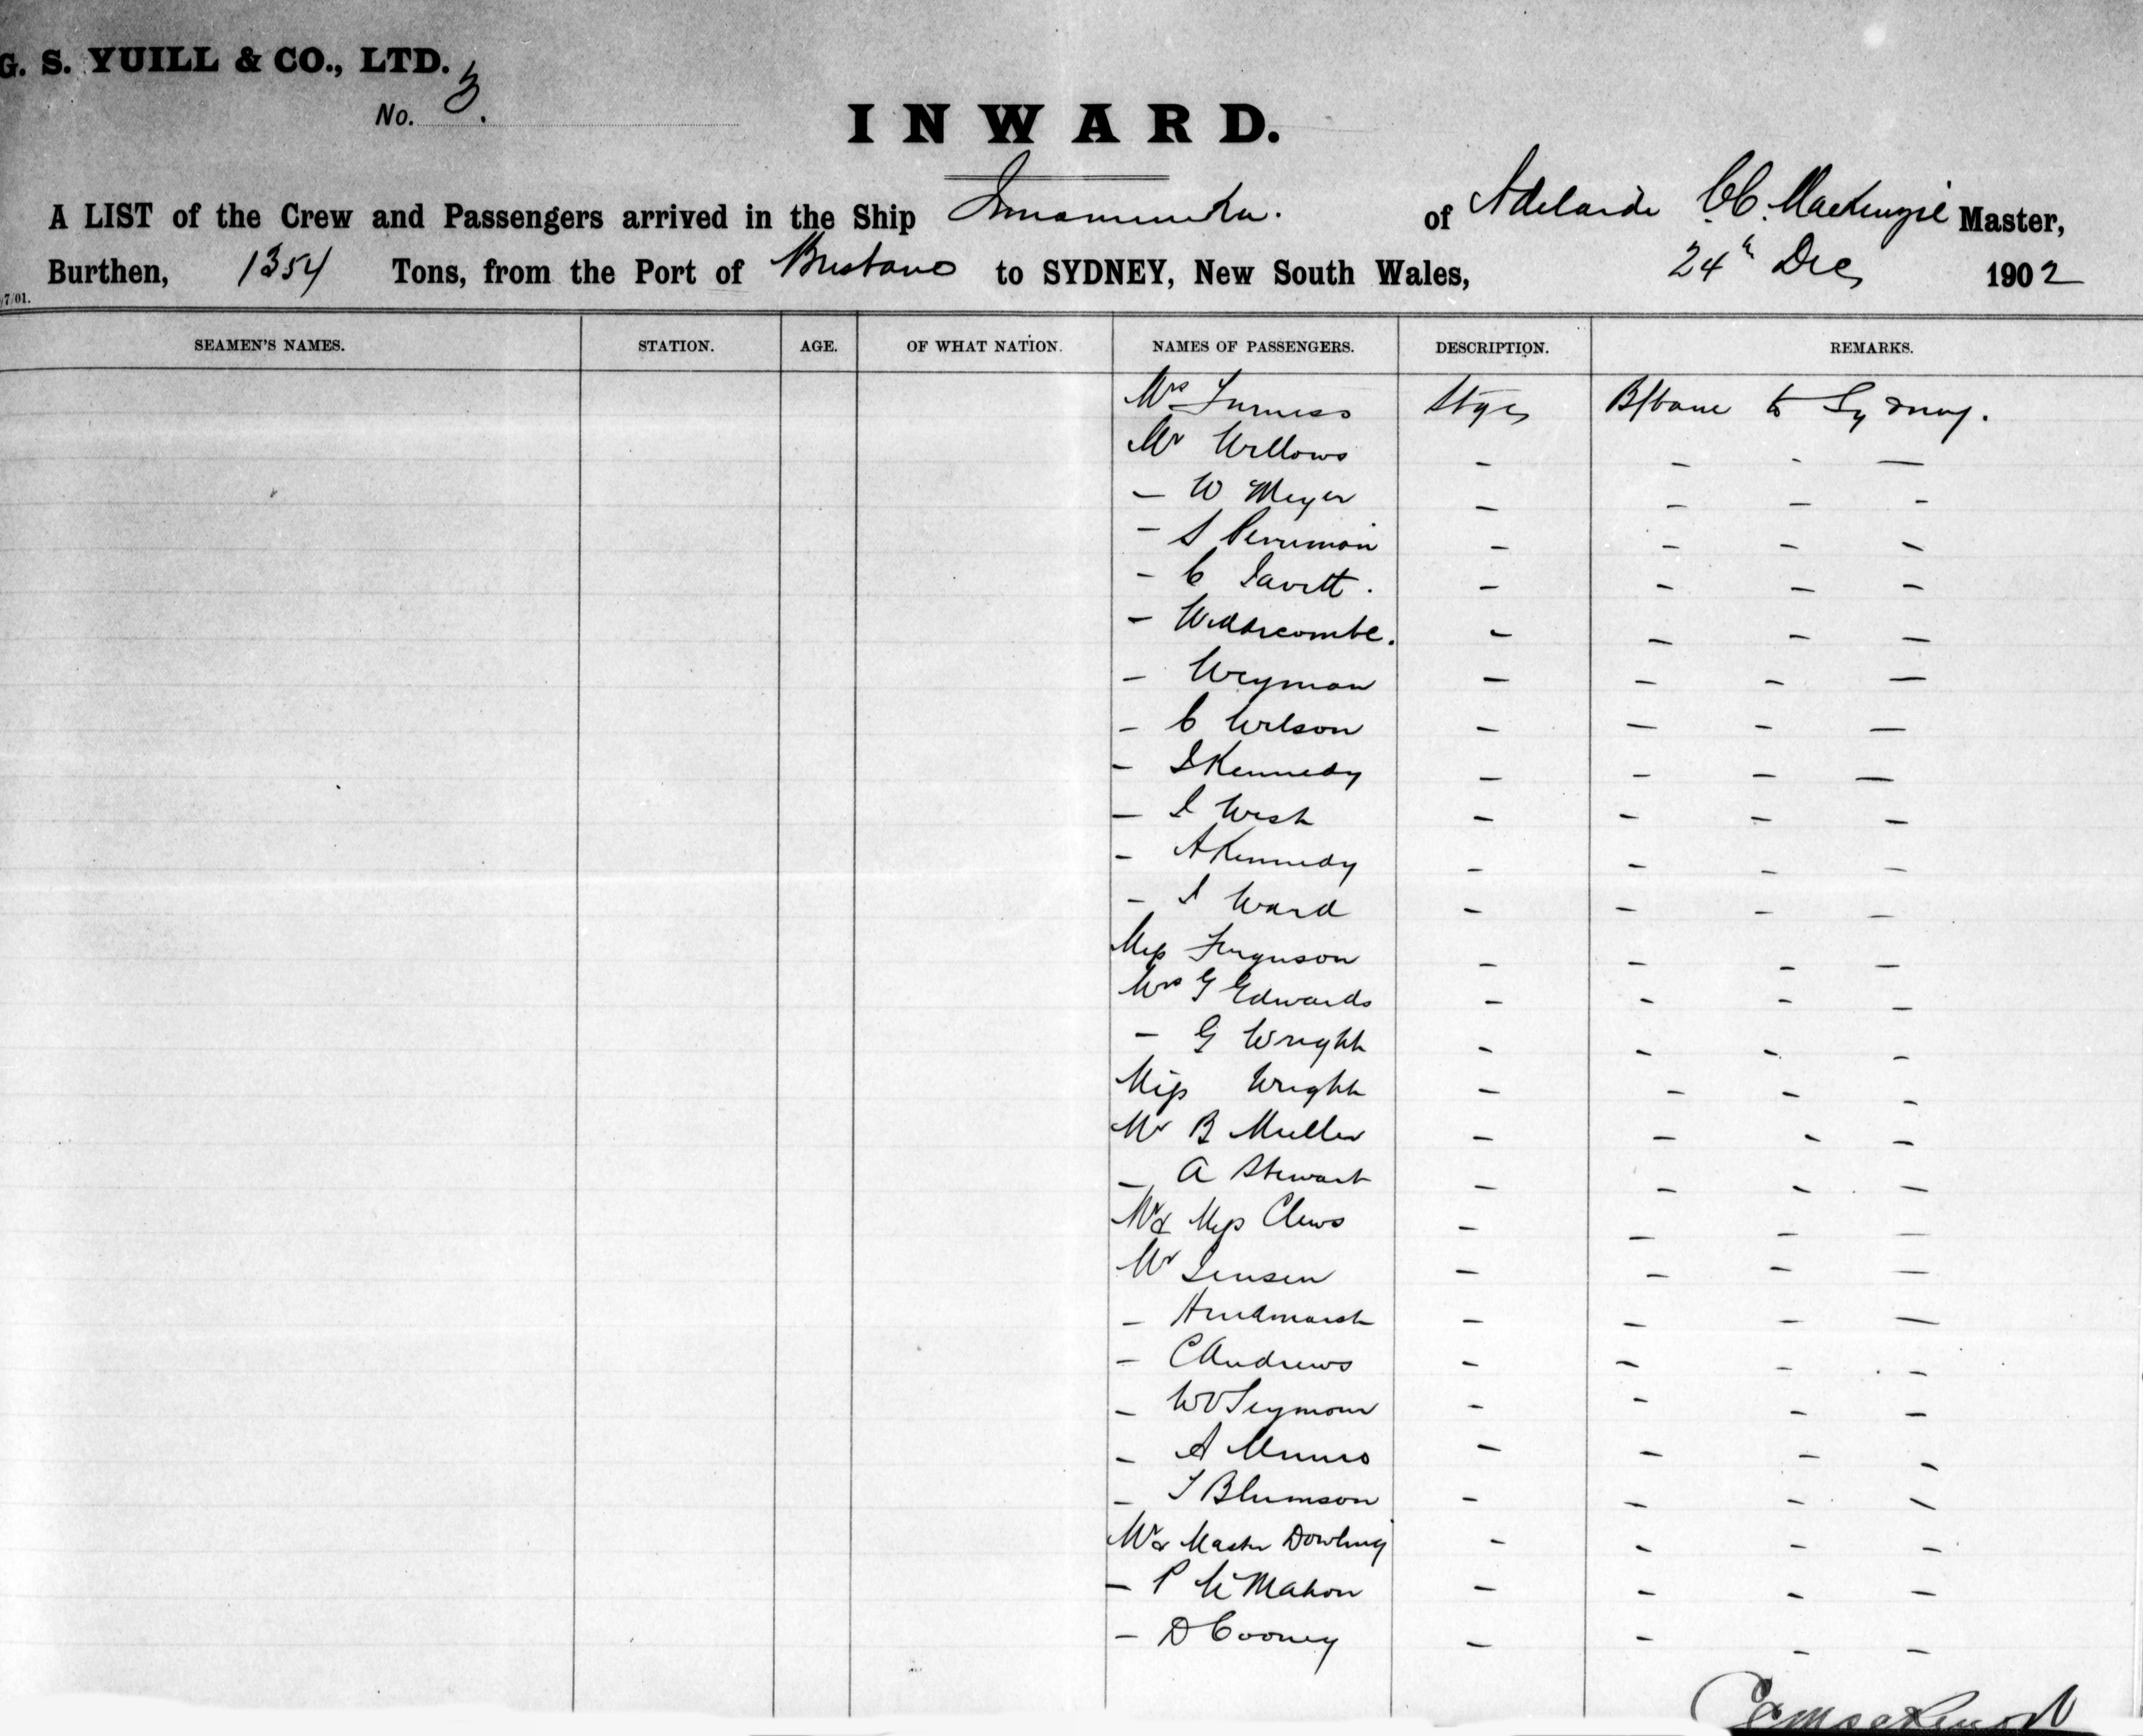 G. S. YUILL & CO., LTD.
No. 3.
INWARD.
A LIST of the Crew and Passengers arrived in the Ship Innamincka. of Adelaide CC. MacKenzie Master,
Burthen, 1354 Tons, from the Port of Brisbane to SYDNEY, New South Wales, 24th Dec 1902
7/01.
SEAMEN'S NAMES. STATION. AGE. OF WHAT NATION. NAMES OF PASSENGERS. DESCRIPTION. REMARKS.
Mrs Furness Stge B/bane to Sydney.
Mr Willows - - - -
- W Meyer - - - -
- S Perriman - - - -
- C - - - -
- Widdecombe. - - - -
- Weyman - - - -
- C Wilson - - - -
- Kennedy - - - -
- J West - - - -
- A Kennedy - - - -
- J Ward - - - -
Miss Ferguson - - - -
Mrs G Edwards - - - -
- G Wright - - - -
Miss Wright - - - -
Mr B Muller - - - -
- A Stewart - - - -
Mr & Miss Clews - - - -
Mr Jensen - - - -
- Hindmarsh - - - -
- C Andrews - - - -
- W Seymour - - - -
- A Munro - - - -
- J Blumson - - - -
Mr & Master Dowling - - - -
- P McMahon - - - -
- D Cooney - - - -